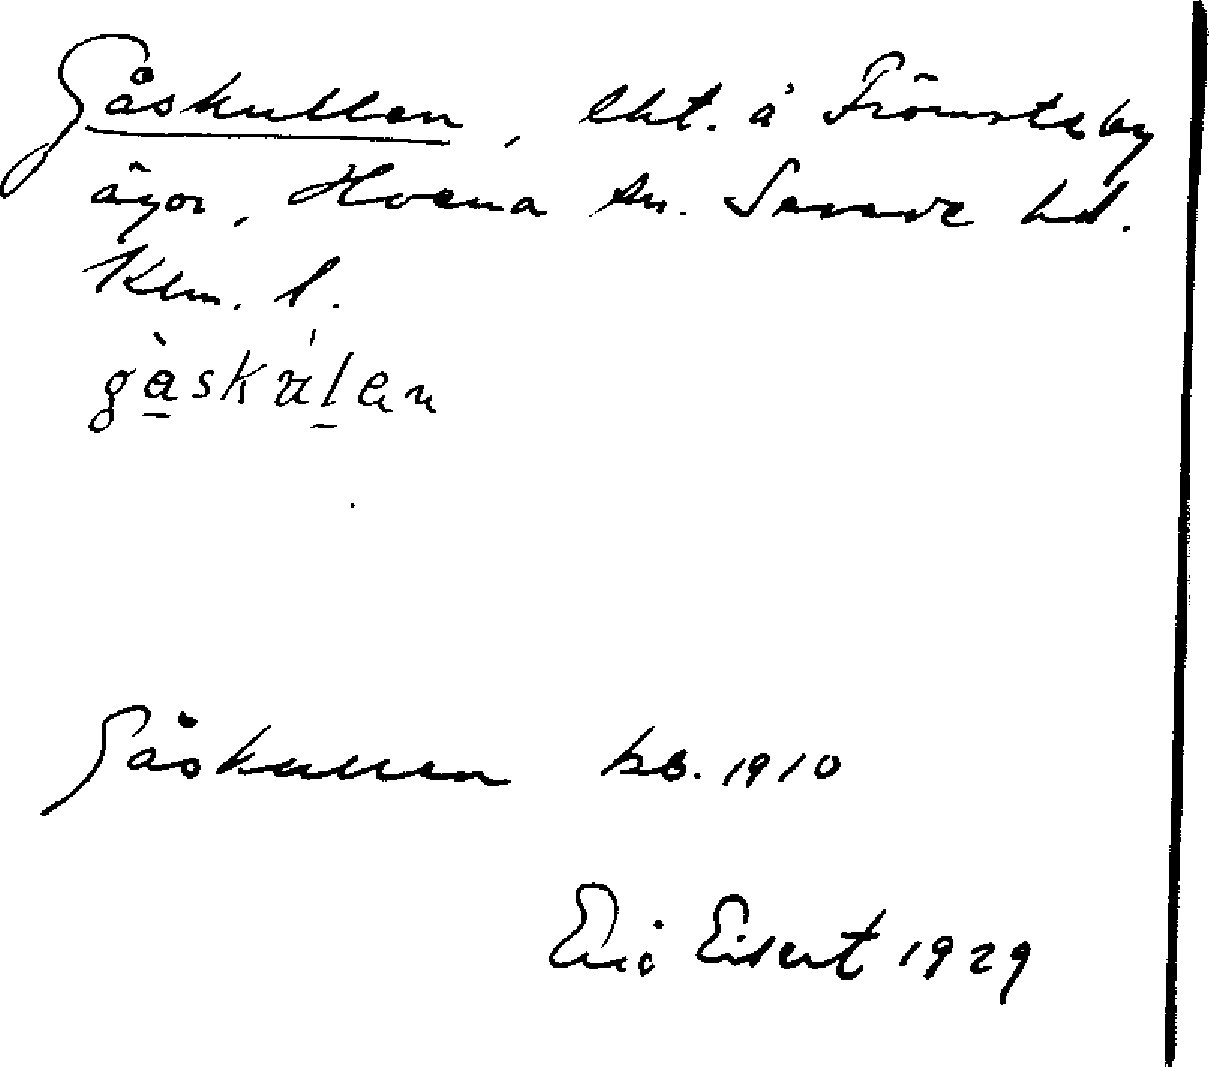 Gåskullen, lht. å Frömsteby
ägor, Hvena sn. Sevede hd.
Klm. l.
gàskúlen
Gåskullen kb. 1910
Eric Eisert 1929